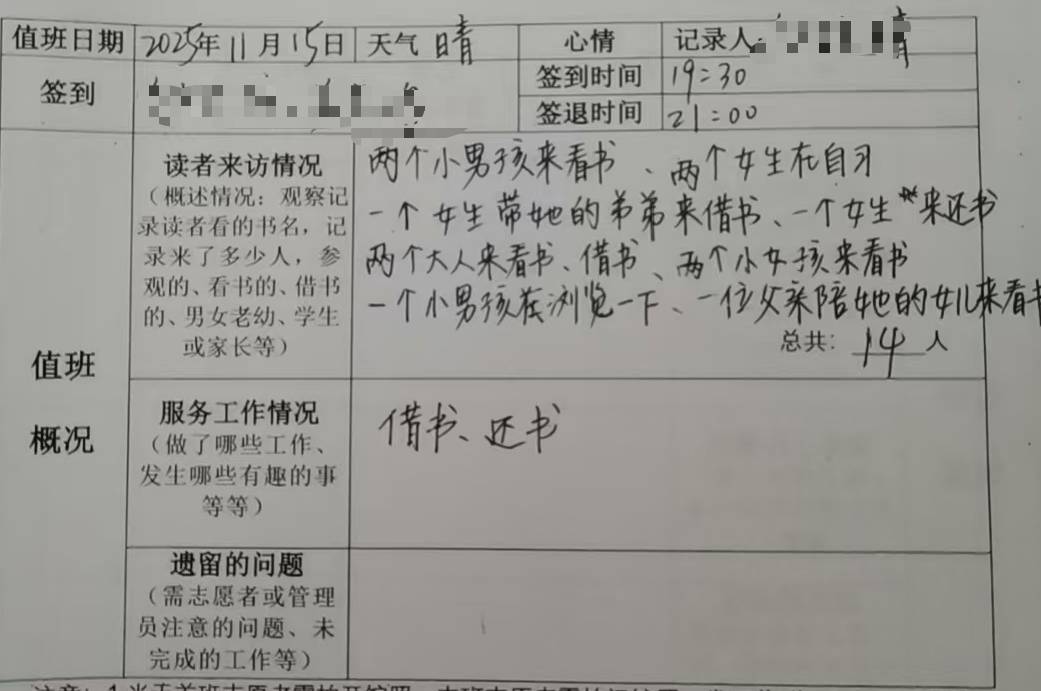 值班日期 2025年11月15日 天气 晴 心情 记录人:
签到 签到时间 19:30
签退时间 21:00
值班概况
读者来访情况
(概述情况:观察记
录读者看的书名,记
录来了多少人,参
观的、看书的、借书
的、男女老幼、学生
或家长等)
两个小男孩来看书、两个女生在自习
一个女生带她的弟弟来借书、一个女生来还书
两个大人来看书、借书、两个小女孩来看书
一个小男孩在浏览一下、一位父亲陪她的女儿来看书
总共:14人
服务工作情况
(做了哪些工作、
发生哪些有趣的事
等等)
借书、还书
遗留的问题
(需志愿者或管理
员注意的问题、未
完成的工作等)